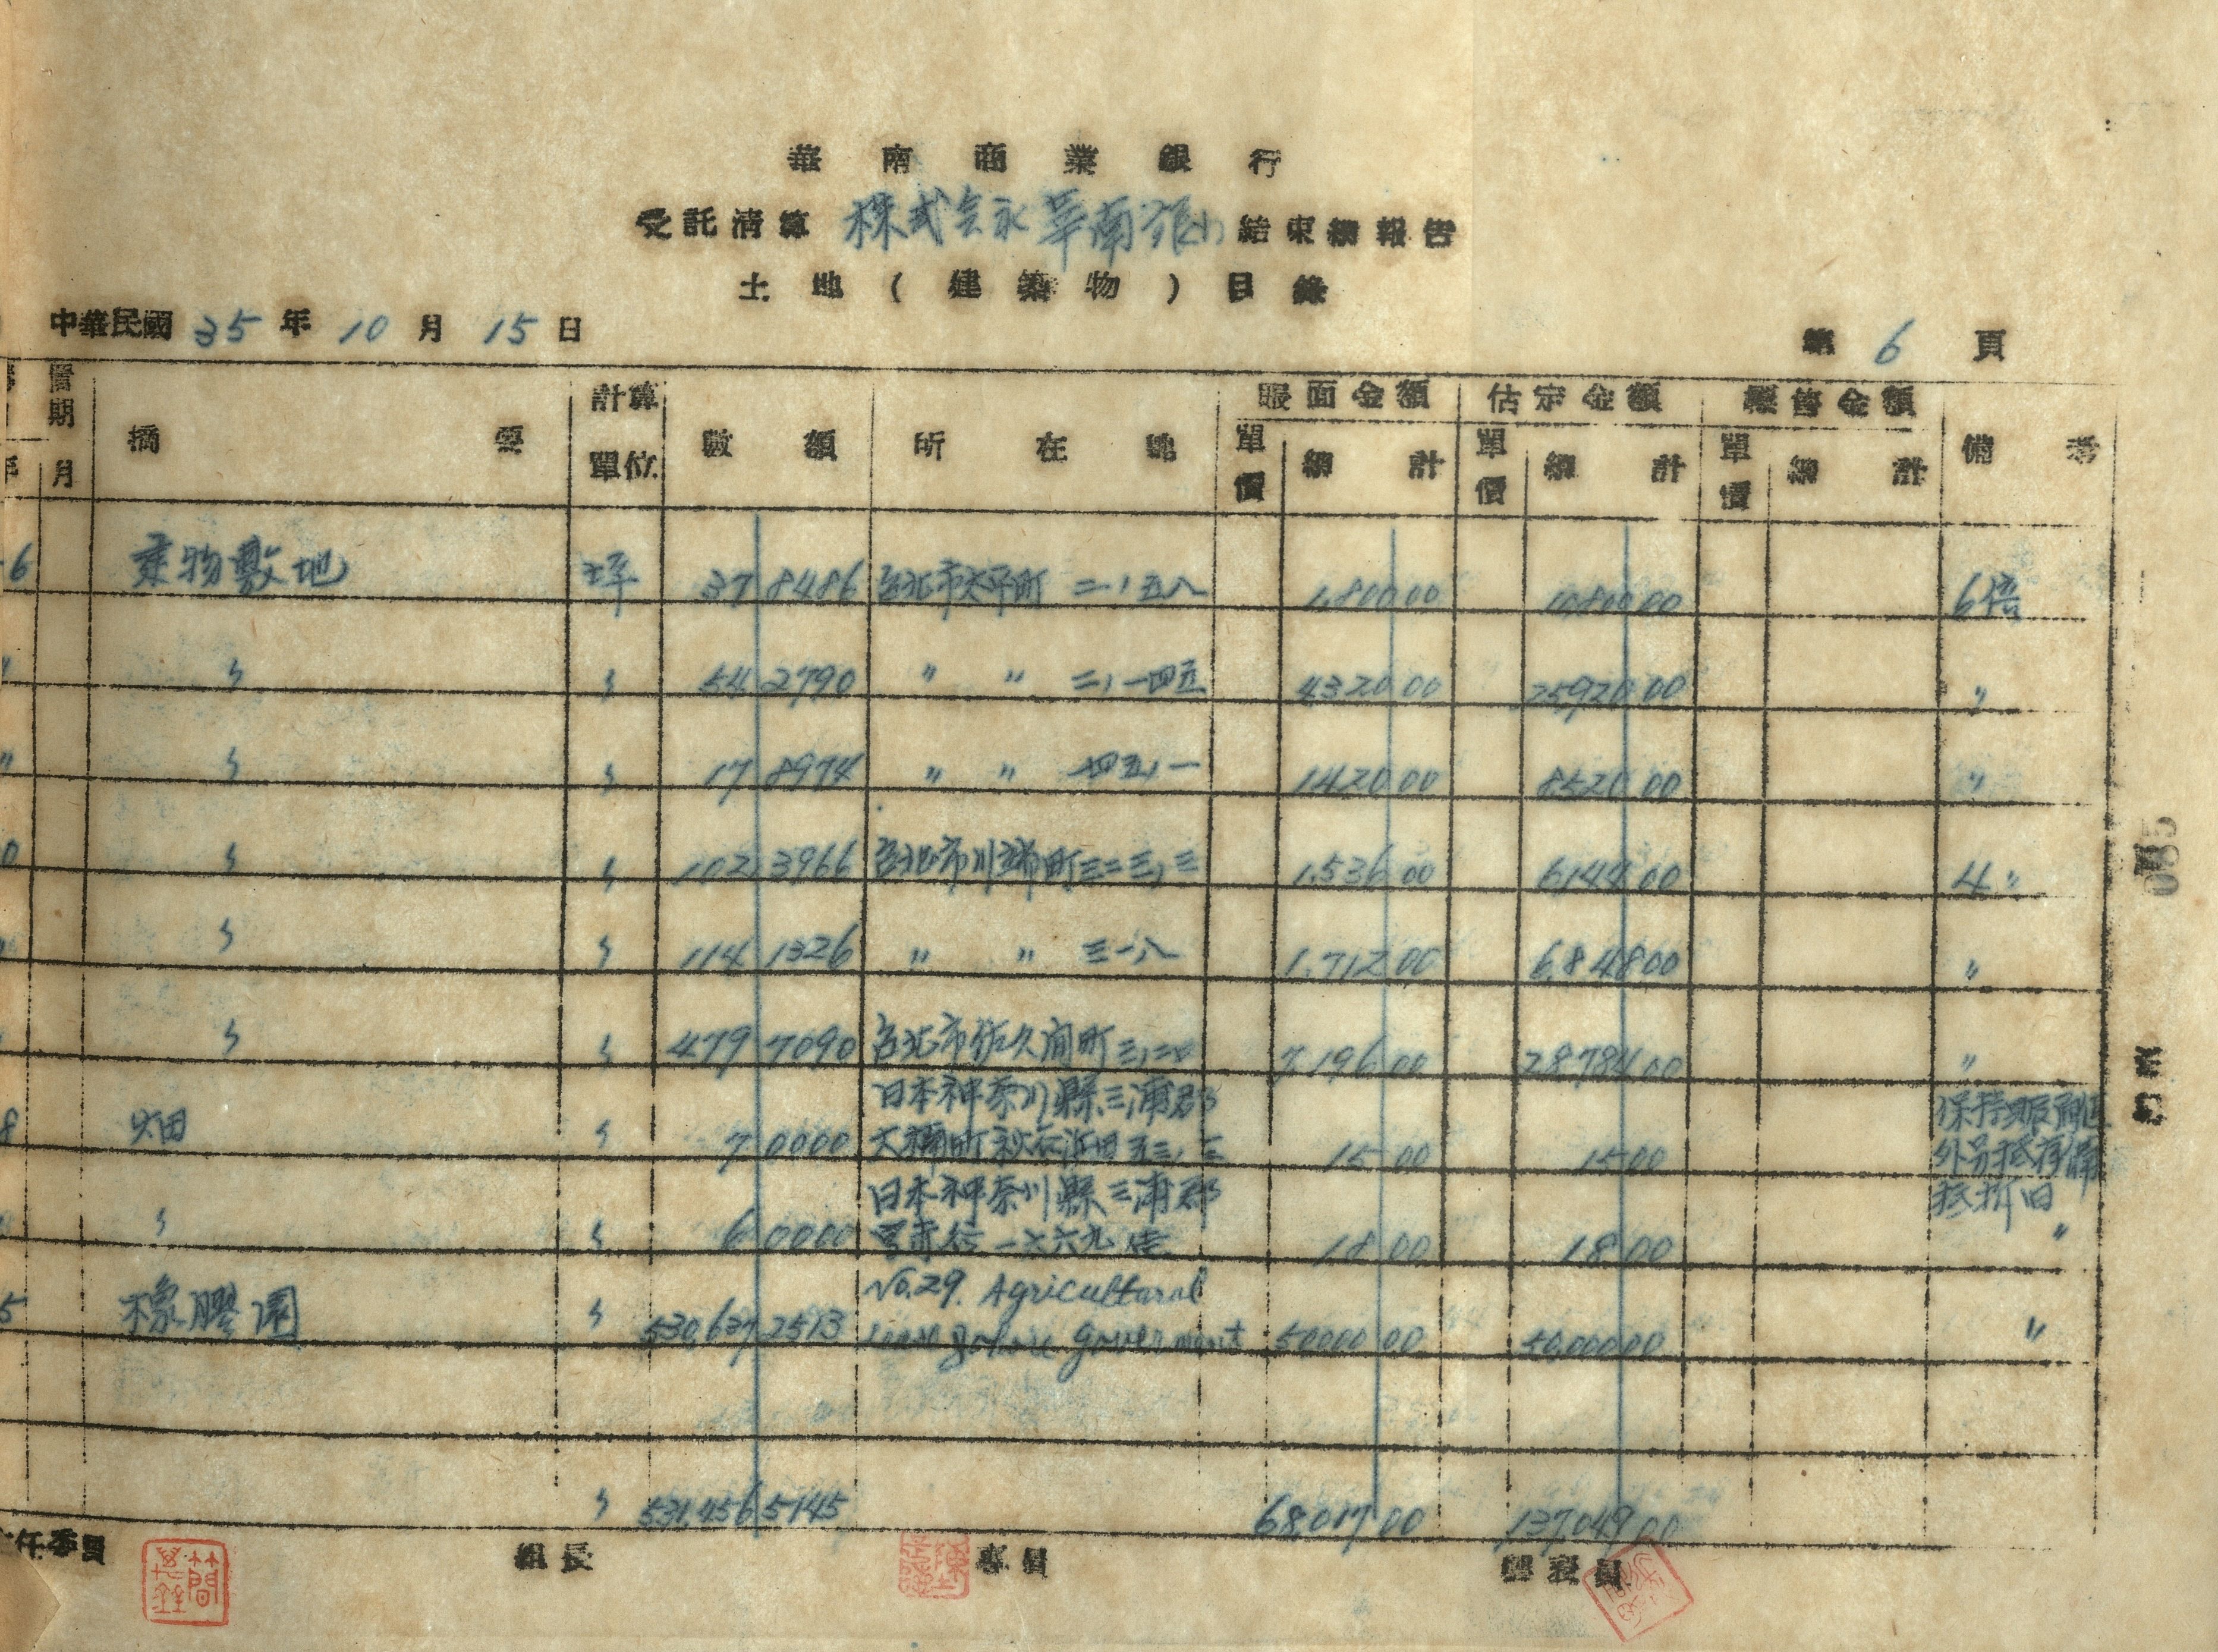 華南商業銀行
受託清算 株式会 華南 結束總報告
土地(建築物)目錄
中華民國 35 年 10 月 15 日
第 6 頁
期 月 摘要 計算單位 數額 所在地 賬面金額 單價 總計 估定金額 單價 總計 售金額 單價 總計 備考
6 建物敷地 坪 37 8486 台北市太平町 二、五八 1,800 00 10,800 00 6倍
〃 〃 〃 54 2790 〃 〃 二、一四五 4320 00 25920 00 〃
〃 〃 〃 17 8974 〃 〃 四五、一 1420 00 8520 00 〃
0 〃 〃 102 3966 台北市川端町三二三、三 1,536 00 6144 00 4 〃
〃 〃 〃 114 1326 〃 〃 三一八 1,712 00 6,848 00 〃
〃 〃 479 7090 台北市佐久間町三、二 7,196 00 28784 00 〃
日本神奈川縣三浦郡
8 畑 〃 7 0000 大楠町秋谷 五三、三 15 00 15 00 保持賬面
外另抵
抵折旧
日本神奈川縣三浦郡
〃 〃 6 0000 一六六九 18 00 18 00 〃
No.29. Agricultural
5 橡膠園 〃 530,637 2513 Johore Government 50000 00 50,000 00 〃
〃 531,456 5145 68,017 00 137,049 00
任委員 組長 專員 員
簡
085